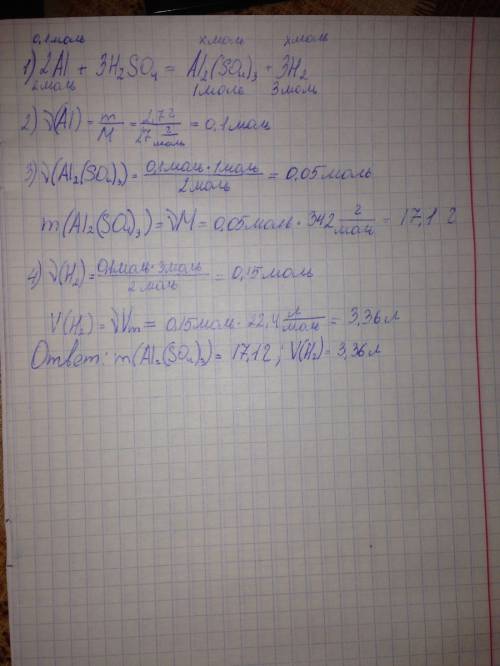 0,1моль хмоль хмоль
1) 2Al + 3H₂SO₄ = Al₂(SO₄)₃ + 3H₂
2моль 1моль 3моль
2) ν(Al) = m/M = 2,7г / 27 г/моль = 0,1моль
3) ν(Al₂(SO₄)₃) = 0,1моль·1моль / 2моль = 0,05моль
m(Al₂(SO₄)₃) = νM = 0,05моль · 342 г/моль = 17,1 г
4) ν(H₂) = 0,1моль·3моль / 2моль = 0,15моль
V(H₂) = νVm = 0,15моль · 22,4 л/моль = 3,36л
Ответ: m(Al₂(SO₄)₃) = 17,1г; V(H₂) = 3,36л